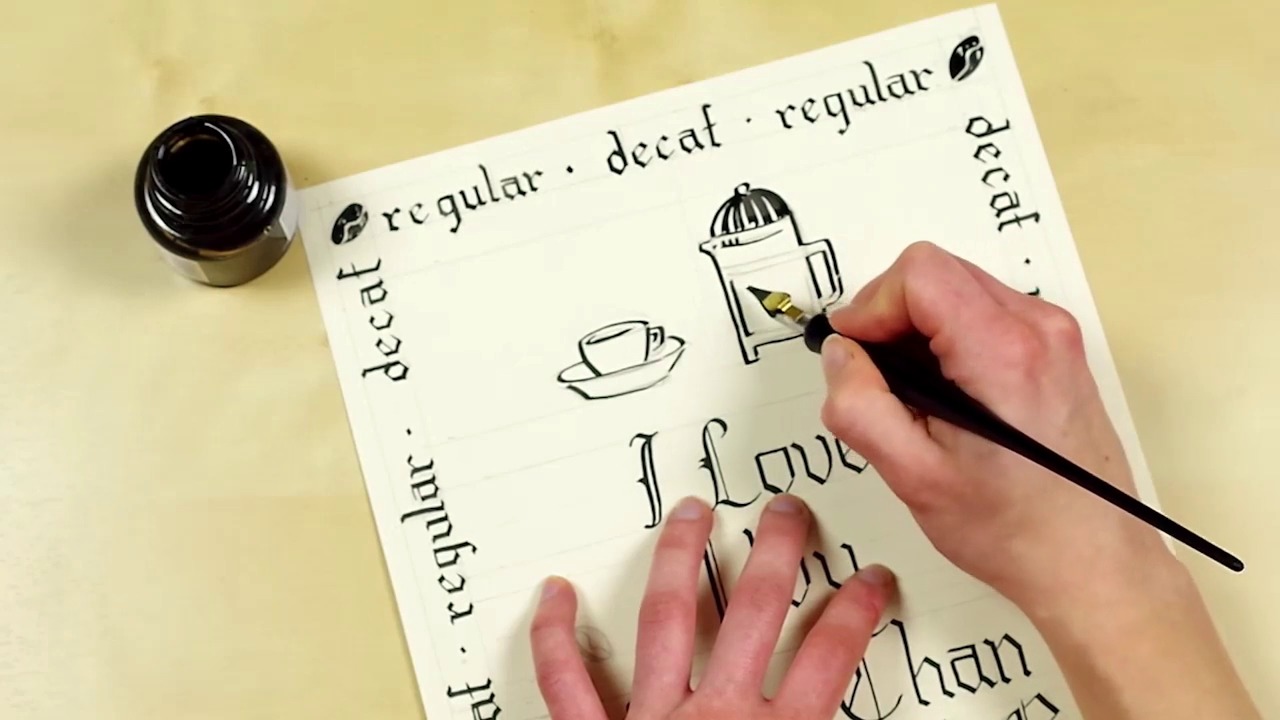 regular · decaf · regular
decaf ·
decaf · regular ·
I Love
You
Chan